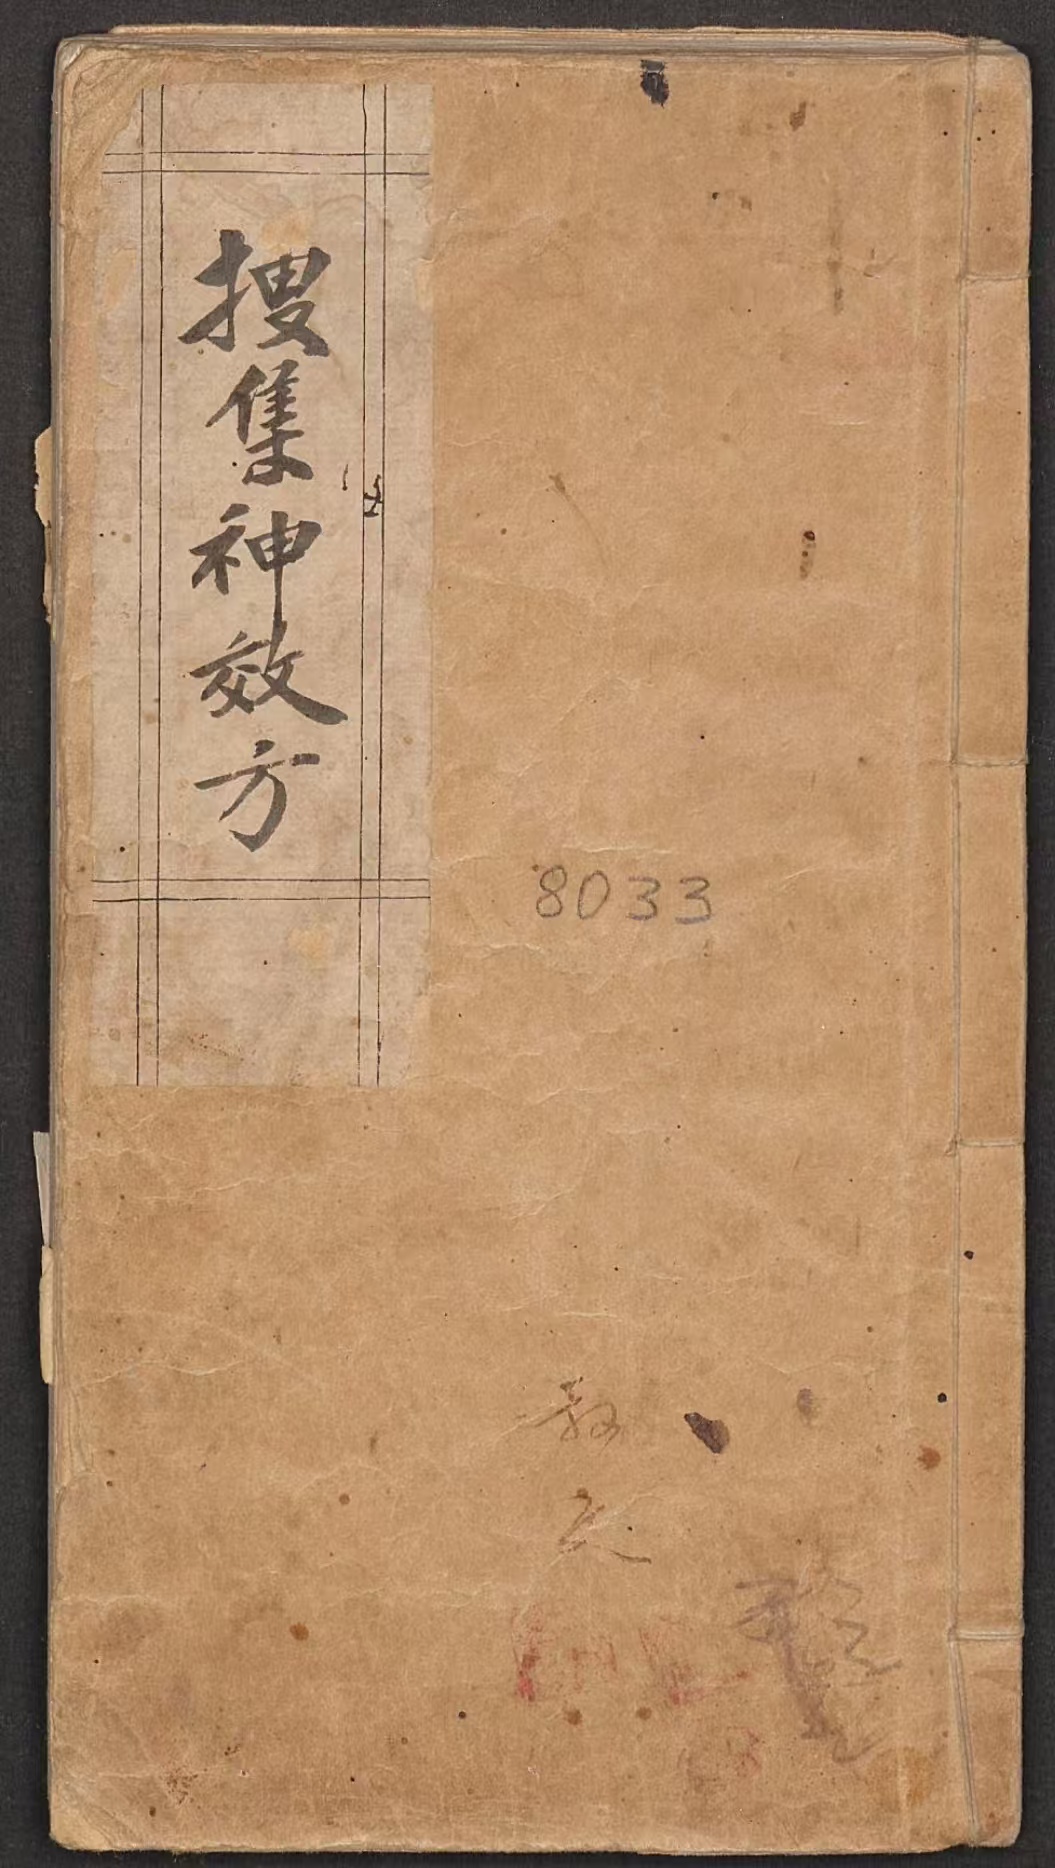 搜集神效方
8033